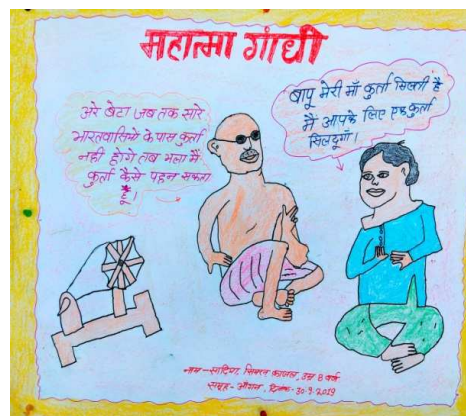 महात्मा गांधी
अरे बेटा जब तक सारे
भारतवासियो के पास कुर्ता
नही होगे तब भला मैं
कुर्ता कैसे पहन सकता
हूँ।
बापू मेरी माँ कुर्ता सिलती है
मैं आपके लिए एक कुर्ता
सिलदूगाँ।
नाम - सादिया सिमरन उम्र 8 वर्ष
समूह - आँगन, दिनांक - 30-9-2019